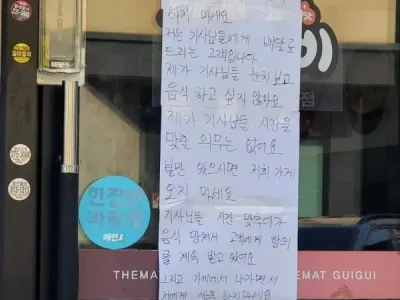 하지 마세요
저는 기사님들에게 배달로
드리는 고객입니다
제가 기사님들 눈치 보고
음식 하고 싶지 않아요
제가 기사님들 시간을
맞출 의무는 없어요
불만 있으시면 저희 가게
오지 마세요
기사님들 시간 맞추다가
음식 망쳐서 고객에게 항의
를 계속 받고 있어요
그리고 가게에서 나가면서
저에게 쌍욕 하지 마세요
THEMA
EMAT GUIGUI
배민1